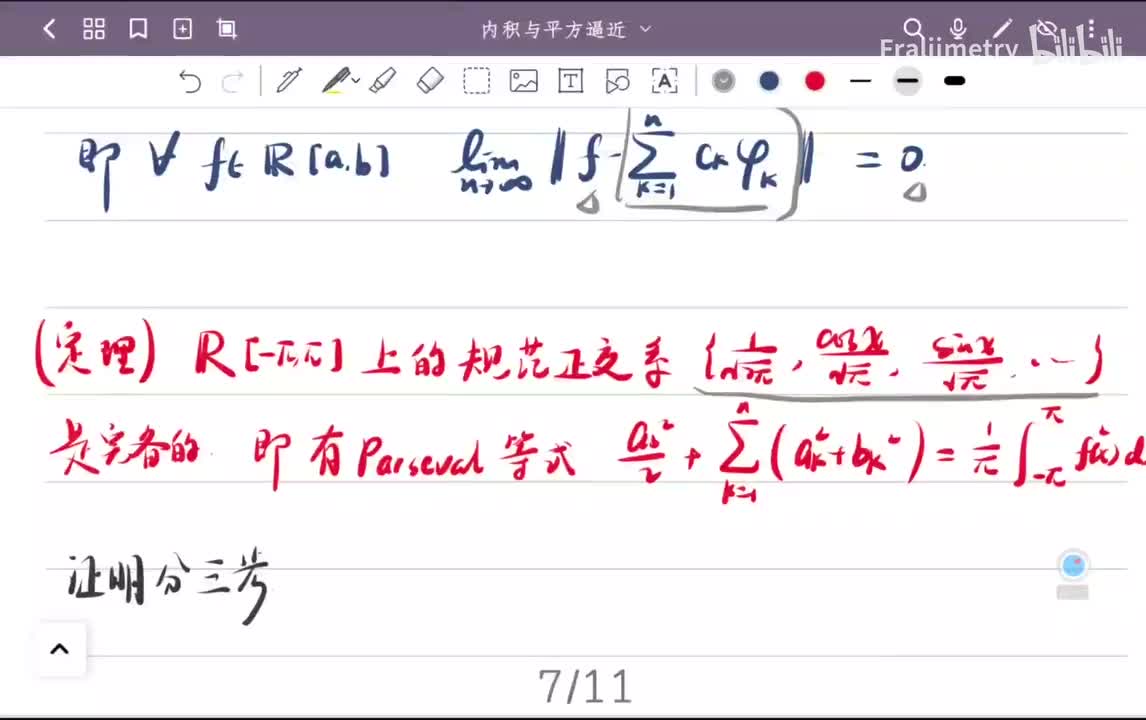 内积与平方逼近
Fraljimetry bilibili
即 ∀ f∈ R[a,b] lim n→∞ ‖f - ∑ k=1 n Cₖ φₖ‖ = 0.
(定理) R[-π,π] 上的规范正交系 {1/√2π, cosx/√π, sinx/√π, …}
是完备的. 即有 Parseval 等式 a₀²/2 + ∑ k=1 n (aₖ²+bₖ²) = 1/π ∫ -π π f²(x) d
证明分三步
7/11